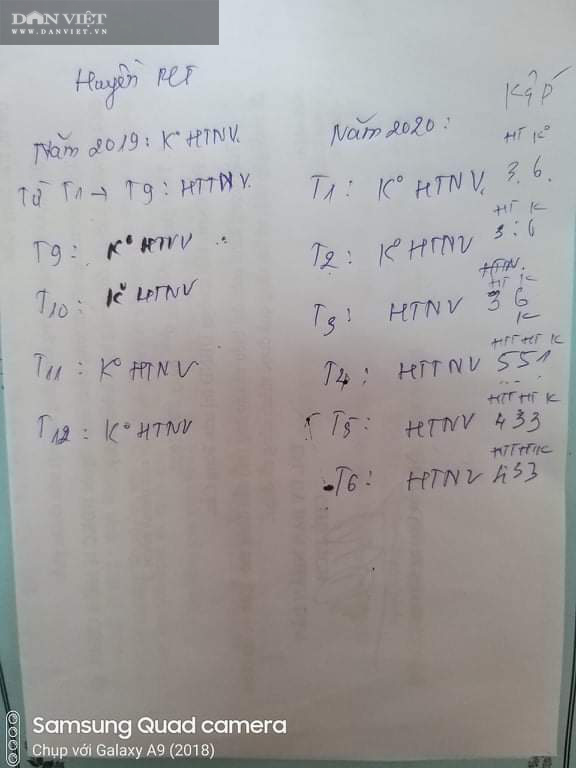 DÂN VIỆT
WWW.DANVIET.VN
Huyền
Năm 2019: K° HTNV.
Từ T1 → T9: HTTNV.
T9: K° HTNV
T10: K° HTNV
T11: K° HTNV
T12: K° HTNV
Năm 2020:
HT K°
T1: K° HTNV. 3. 6.
HT K
T2: K° HTNV 3:6
HTNV.
HT K
T3: HTNV 3 6
K
HTT HT K
T4: HTTNV 551
HTT HT K
T5: HTNV 433
HTT HT K
T6: HTNV 433
Samsung Quad camera
Chụp với Galaxy A9 (2018)